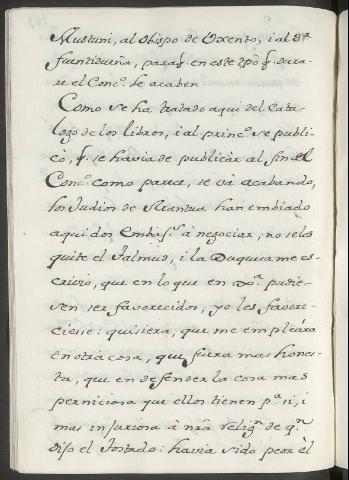 Mustuni, al Obispo de Oxento, i al Sr.
fuentidueña, paraq̃. en este tpõ q̃. dura-
re el Concº. se acaben.
Como se ha tratado aqui del Cata-
logo de los libros, i al princº. se publi-
cò, q̃. se havia de publicàr al fin del
Concº. como parece, se và acabando,
los Judios de Mantua han embiado
aqui dos Embaj.s à negociar, no se les
quite el Talmud, i la Duquesa me es-
crivio, que en lo que en Dª. pudie-
sen ser favorecidos, yo les favore-
ciesse: quisiera, que me empleára
en otra cosa, que fuera mas hones-
ta, que en defender la cosa mas
perniciosa que ellos tienen pª. si, i
mas injuriosa à nrã relig.n de q.n
dijo el Tostado: havia sido peor èl